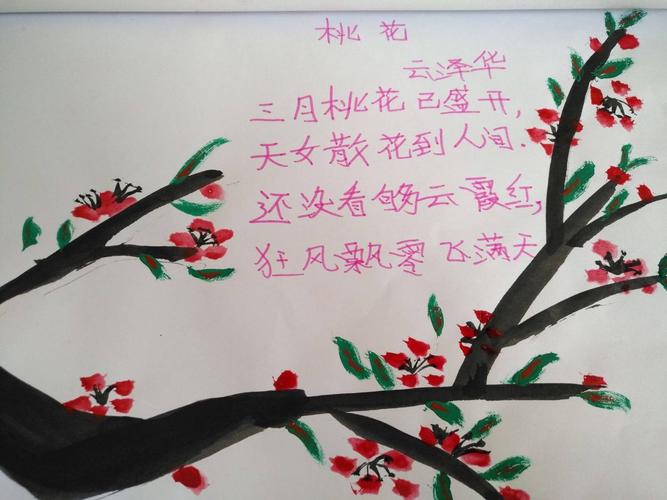 桃花
云泽华
三月桃花已盛开,
天女散花到人间.
还没看够云霞红,
狂风飘零飞满天